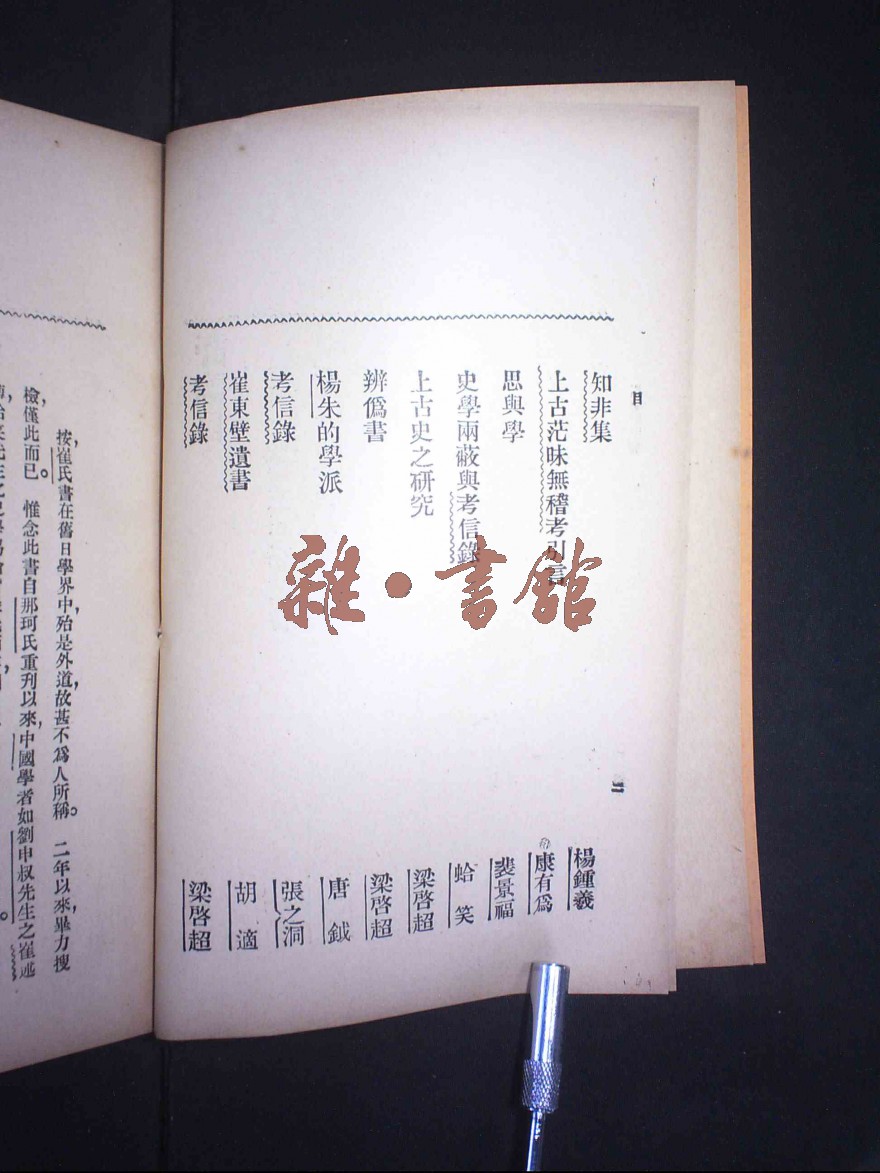 目　二
知非集　楊鍾羲
上古茫昧無稽考引言　康有爲
思與學　裴景福
史學兩蔽與考信錄　蛤笑
上古史之研究　梁啓超
辨僞書　梁啓超
楊朱的學派　唐鉞
考信錄　張之洞
崔東壁遺書　胡適
考信錄　梁啓超
按崔氏書在舊日學界中，殆是外道，故甚不爲人所稱。二年以來，畢力搜
檢，僅此而已。惟念此書自那珂氏重刊以來，中國學者如劉申叔先生之崔述
雜・書館